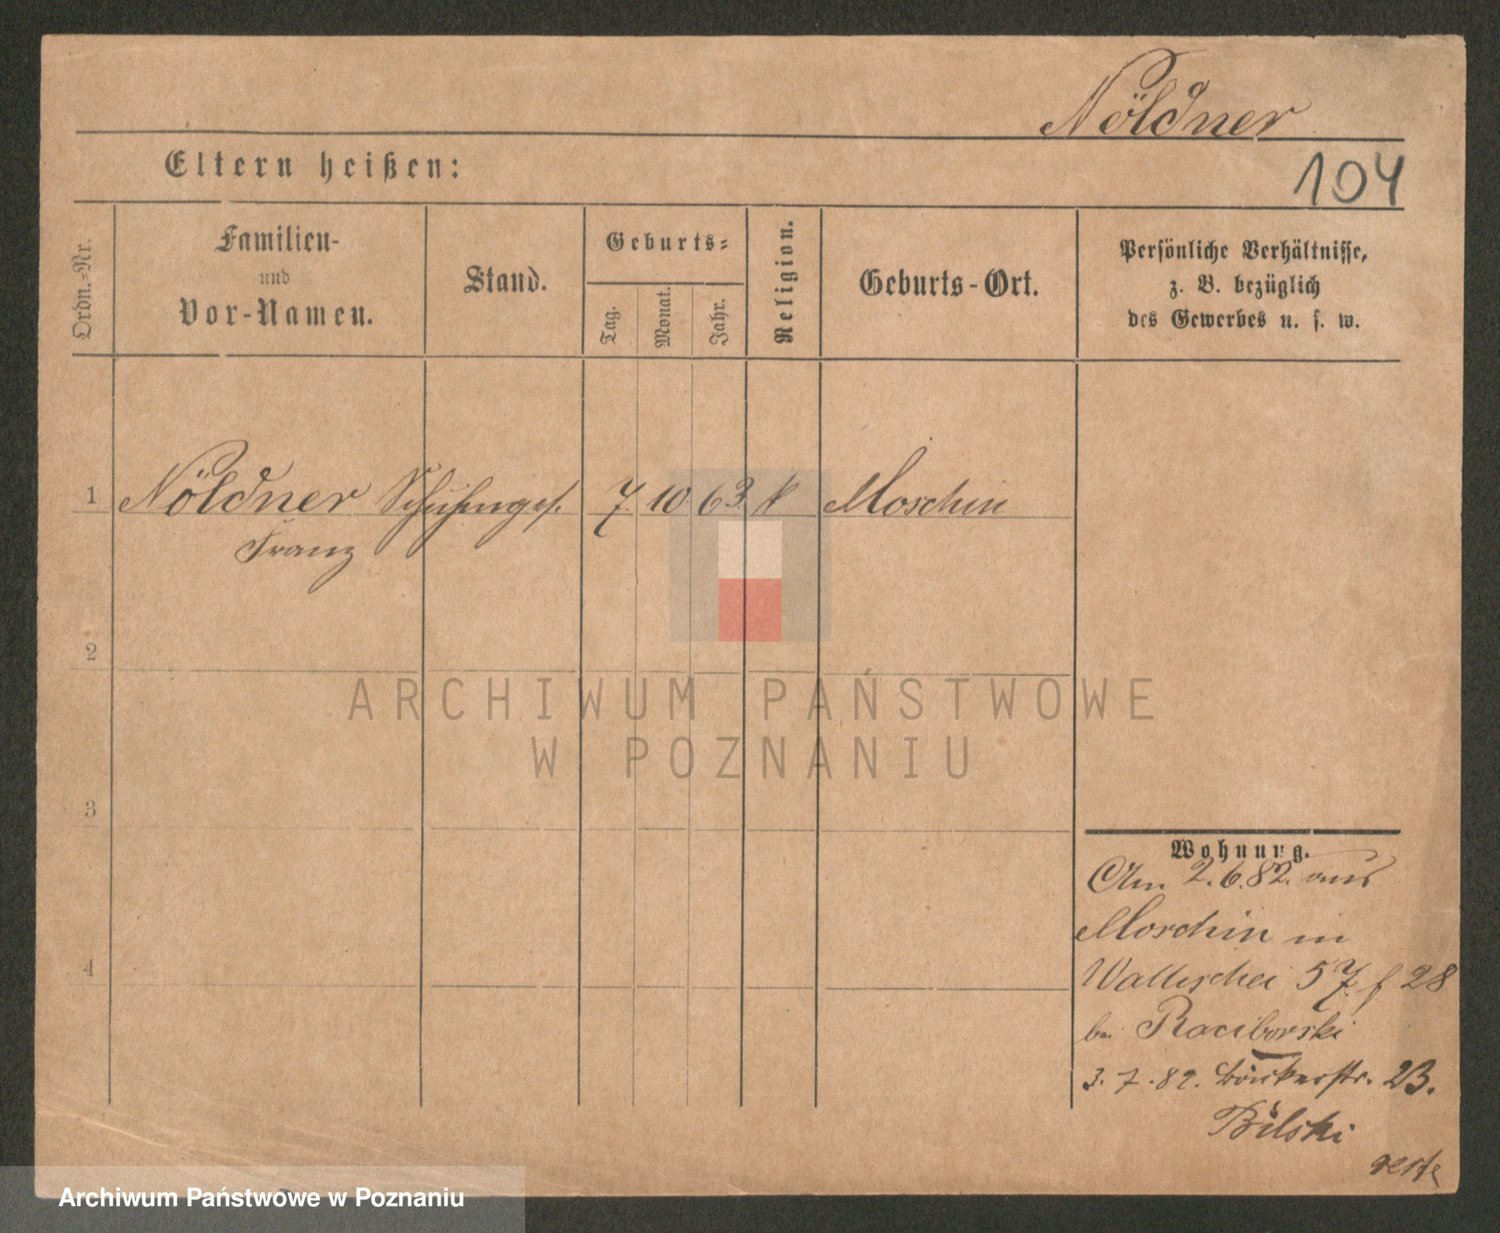 Nöldner
Eltern heißen:
104
Ordn.-Nr.
Familien-
und
Vor-Namen.
Stand.
Geburts-
Tag.
Monat.
Jahr.
Religion.
Geburts-Ort.
Persönliche Verhältnisse,
z. B. bezüglich
des Gewerbes u. s. w.
1 Nöldner Schuhmges. 7. 10. 63. k Moschin
Franz
2
3
4
ARCHIWUM PAŃSTWOWE
W POZNANIU
Wohnung.
Am 2.6.82. aus
Moschin in
Wallischei 57. f 28
bei Raciborski
3.7.82. Bäckerstr. 23.
Bilski
Archiwum Państwowe w Poznaniu